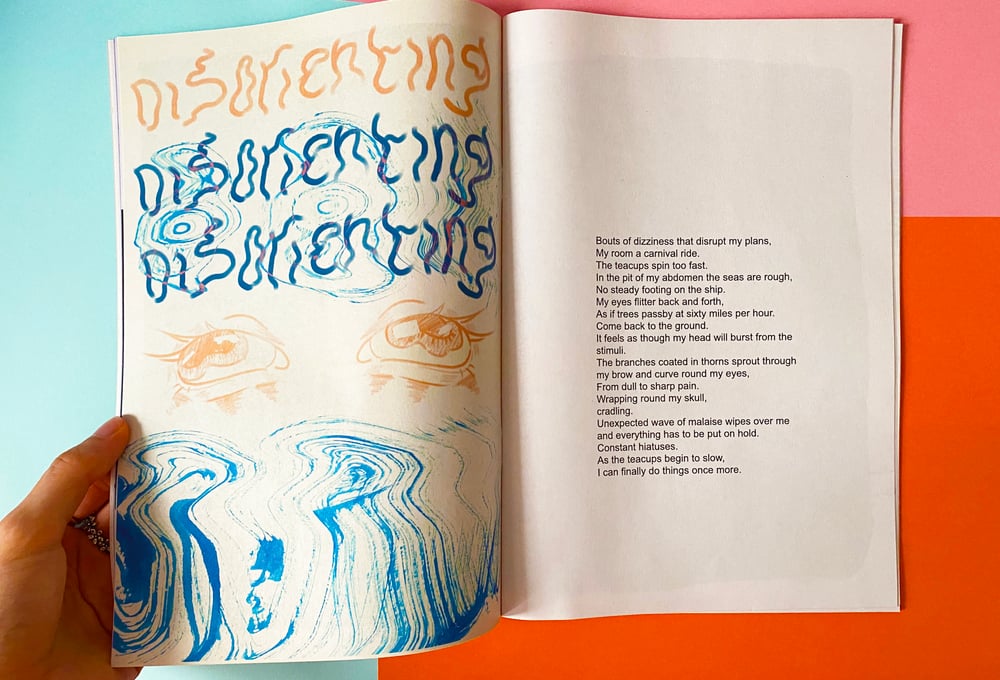 DISORIENTING
DISORIENTING
DISORIENTING
Bouts of dizziness that disrupt my plans,
My room a carnival ride.
The teacups spin too fast.
In the pit of my abdomen the seas are rough,
No steady footing on the ship.
My eyes flitter back and forth,
As if trees passby at sixty miles per hour.
Come back to the ground.
It feels as though my head will burst from the
stimuli.
The branches coated in thorns sprout through
my brow and curve round my eyes,
From dull to sharp pain.
Wrapping round my skull,
cradling.
Unexpected wave of malaise wipes over me
and everything has to be put on hold.
Constant hiatuses.
As the teacups begin to slow,
I can finally do things once more.